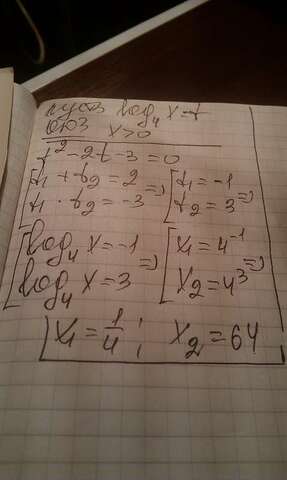 пусть log₄ x = t
ОДЗ x>0
t² - 2t - 3 = 0
[t₁ + t₂ = 2 => [t₁ = -1
[t₁ · t₂ = -3 [t₂ = 3 =>
[log₄ x = -1 => [x₁ = 4⁻¹
[log₄ x = 3 [x₂ = 4³ =>
x₁ = 1/4 ; x₂ = 64